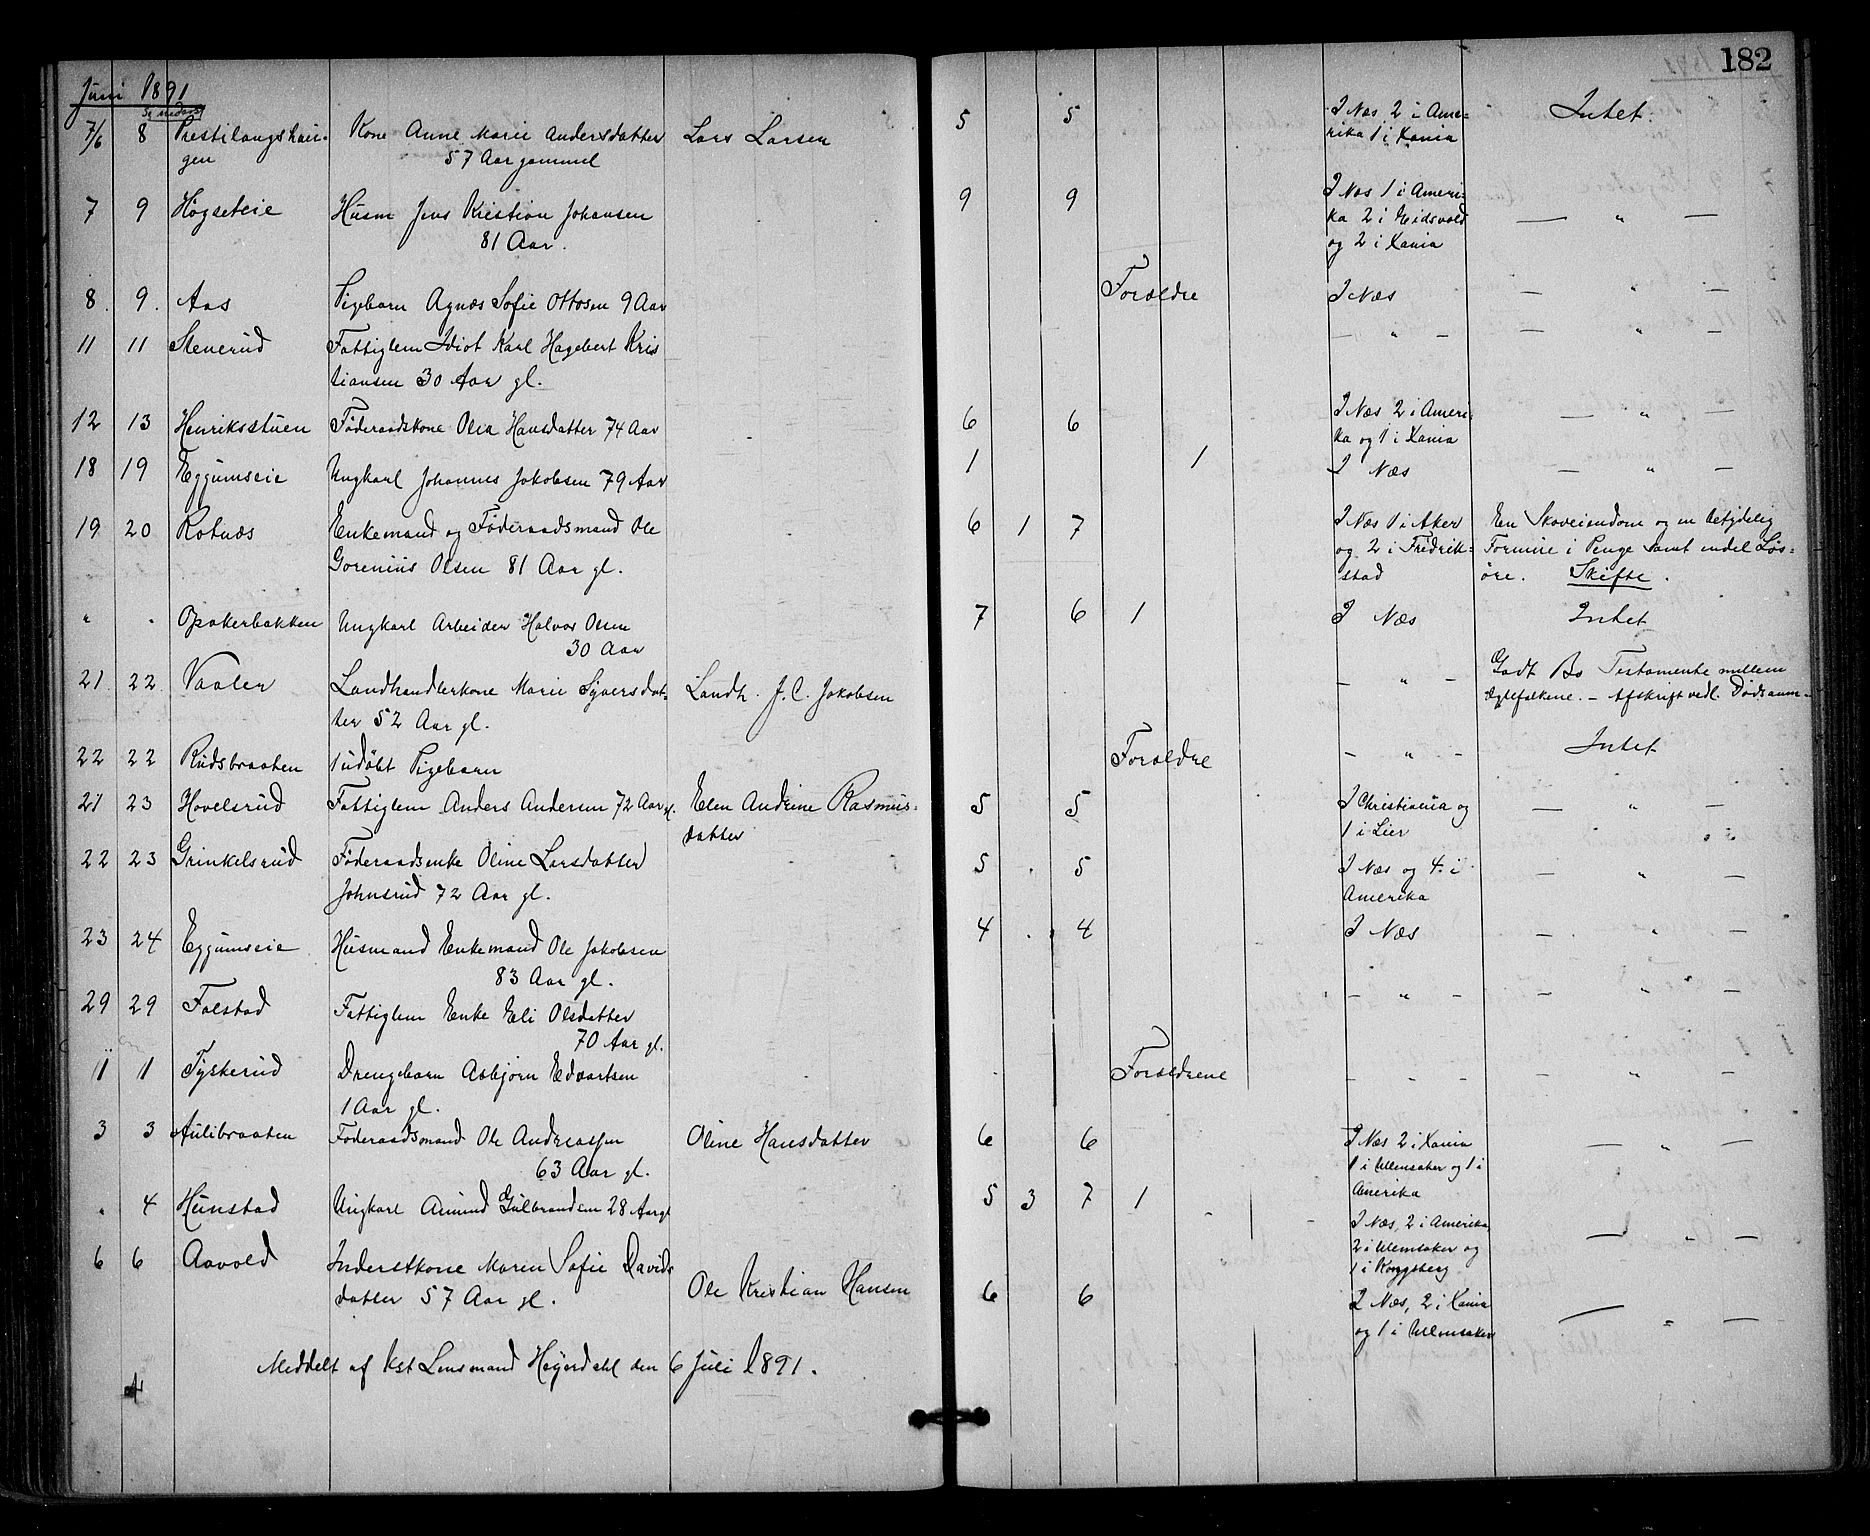 182
Juni 1891
7/6 8 Prestilangshau- Kone Anne Marie Andersdatter Lars Larsen 5 5 I Næs 2 i Ame- Intet.
gen 57 Aar gammel rika 1 i Xania
7 9 Høgseteie Husm Jens Kristian Johansen 9 9 I Næs 1 i Ameri-
81 Aar. ka 2 i Eidsvold — " —
og 2 i Xania
8. 9. Aas Pigebarn Agnæs Sofie Ottosen 9 Aar Forældre I Næs — " —
11 11 Stenerud Fattiglem Idiot Karl Hagebert Kris — " — — " —
tiansen 30 Aar gl.
12 13 Henriksstuen Føderaadskone Olia Hansdatter 74 Aar 6 6 I Næs 2 i Ameri- — " —
ka og 1 i Xania
18 19 Eggumseie Ungkarl Johannes Jakobsen 79 Aar 1 1 I Næs — " —
19 20 Rotnæs Enkemand og Føderaadsmand Ole 6 1 7 I Næs 1 i Aker En Skoveiendom og en betydelig
Gorenius Olsen 81 Aar gl. og 2 i Fredrik- Formue i Penge samt endel Løs-
stad øre. Skifte.
" " Opakerbakken Ungkarl Arbeider Halvor Olsen 7 6 1 I Næs Intet
30 Aar
21. 22. Vaaler Landhandlerkone Marie Syversdat- Landh. J. C. Jakobsen — " — Godt Bo Testamente mellem
ter 52 Aar gl. Ægtefolkene. — Afskrift vedl. Dødsanm—
22 22 Rudsbraaten 1 udøbt Pigebarn Forældre — " — Intet
21 23 Hovelsrud Fattiglem Anders Andersen 72 Aar gl. Elen Andrine Rasmus- 5 5 I Christiania og — " —
datter 1 i Lier
22 23 Grinkelsrud Føderaadsenke Oline Larsdatter 5 . 5 I Næs og 4 i — " —
Johnsrud 72 Aar gl. Amerika
23 24 Eggumseie Husmand Enkemand Ole Jakobsen 4 . 4 I Næs — " —
83 Aar gl.
29 29 Folstad Fattiglem Enke Eli Olsdatter — " — — " —
70 Aar gl.
1 1 Tyskerud Drengebarn Asbjørn Edvartsen Forældrene — " — — " —
1 Aar gl.
3 3 Aulibraaten Føderaadsmand Ole Andreassen Oline Hansdatter 6 6 I Næs 2 i Xania — " —
63 Aar gl. 1 i Ullensaker og 1 i
Amerika
" 4 Hunstad Ungkarl Amund Gulbrandsen 28 Aar gl 5 3 7 1 I Næs, 2 i Amerika — " —
2 i Ullensaker og
1 i Kongsberg
6 6 Aavold Inderstkone Maren Sofie Davids Ole Kristian Hansen 6 6 I Næs, 2 i Xania — " —
datter 57 Aar gl. og 1 i Ullensaker
Meddelt af Kst Lensmand Høyerdahl den 6 Juli 1891.